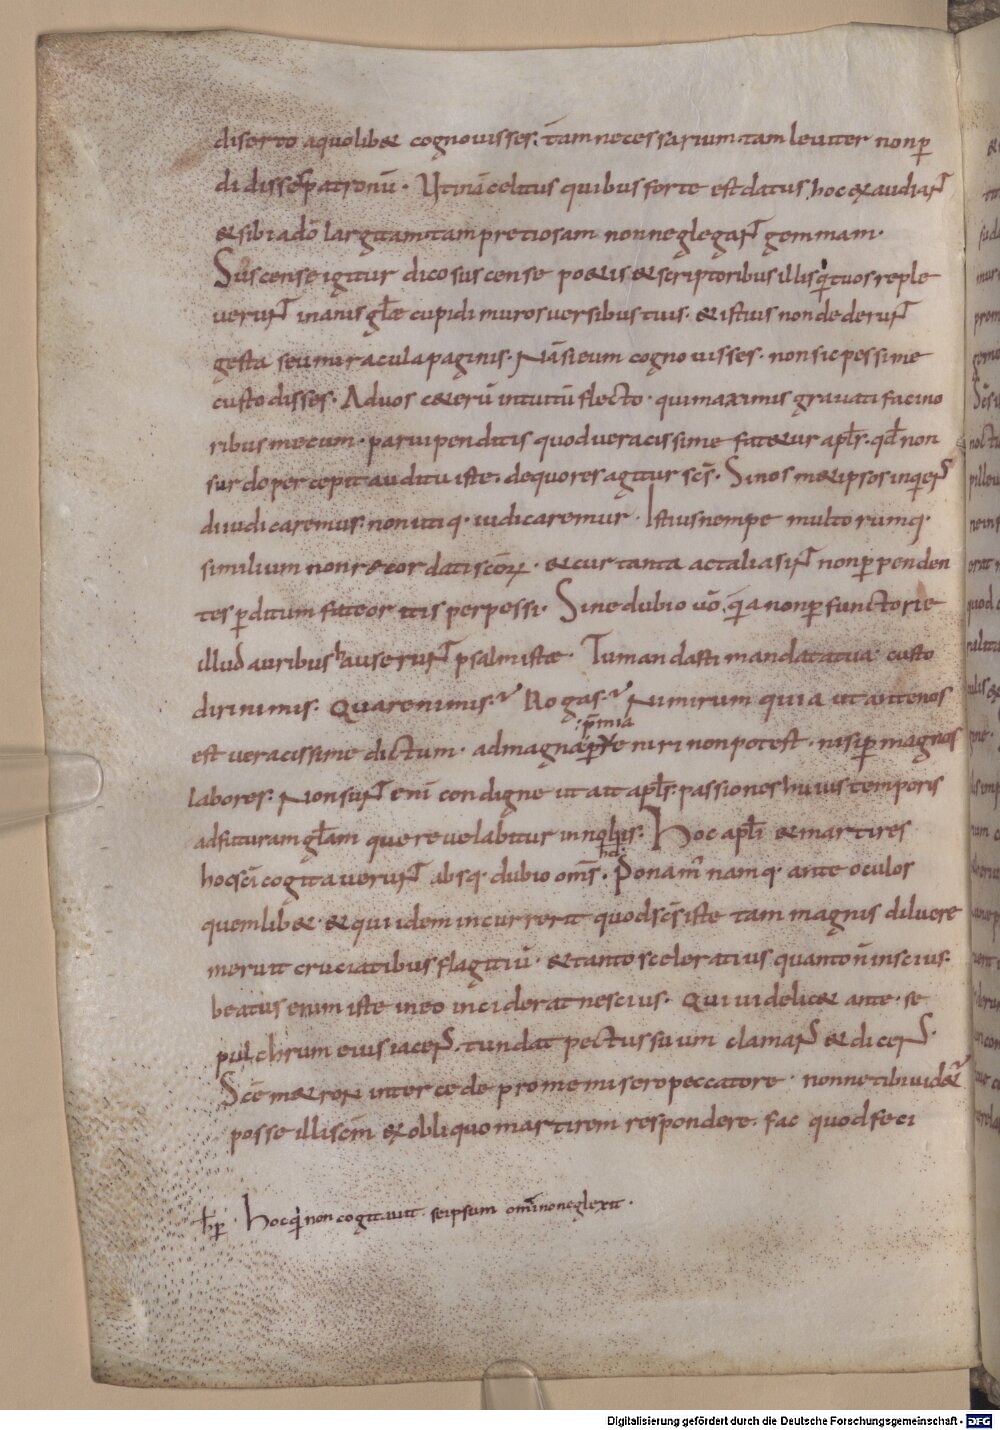 diserto aquolib& cognouisses. tam necessarium. tam leuiter nonp
didisses patronū. Utinā celitus quibus forte est datus, hoc exaudiant
& sibi ad̄o largitam tam pretiosam non neglegant gemmam.
Suscense igitur dico suscense po&is & scriptoribus illis q̇ tuos reple
uerunt inanis gl̄æ cupidi muros uersibus tuis. & istius non dederunt
gesta seu miracula paginis. Nā si eum cognouisses. non sic pessime
custodisses. Aduos c&erū intuitū flecto. qui maximis grauati facino
ribus mecum. paruipenditis quod ueracissime fat&ur apl̄s. qd̄ non
surdo percepit auditu iste. de quo res agitur sc̄s. Si nos m&ipsos inqens
diiudicaremus. non utiq. iudicaremur. Istius nempe multorumq.
similium non recordati sc̄orꝝ. & cur tanta ac talia sint non ppenden
tes pditum fateor itis perpessi. Sine dubio ūo q̄a non pfunctorie
illud auribus hauserunt psalmistæ. Tu mandasti mandata tua custo
diri nimis. Quare nimis? Rogas? Nimirum quia ut ante nos
p̄mia
est ueracissime dictum. ad magna pueniri non potest. nisi p magnos
labores. Non sunt enī condigne ut ait apl̄s. passiones huius temporis
ad futuram gl̄am que reuelabitur in nobis. Hoc apl̄i & martires
hoc sc̄i cogitauerunt absq. dubio om̄s. Ponam' namq. ante oculos
quemlib&. & qui idem incurrerit quod sc̄s iste tam magnis diluere
meruit cruciatibus flagitiū. & tanto sceleratius quanto n̄ inscius.
beatus enim iste in eo inciderat nescius. Qui uidelic& ante se
pulchrum eius iacens. tundat pectus suum clamans & dicens.
Sc̄e m&ron intercede pro me misero peccatore. nonne tibi uid&ur
posse illi sc̄m ex obliquo martirem respondere. fac quod feci
hp. Hoc qi non cogitauit. seipsum omnino neglexit.
Digitalisierung gefördert durch die Deutsche Forschungsgemeinschaft - DFG